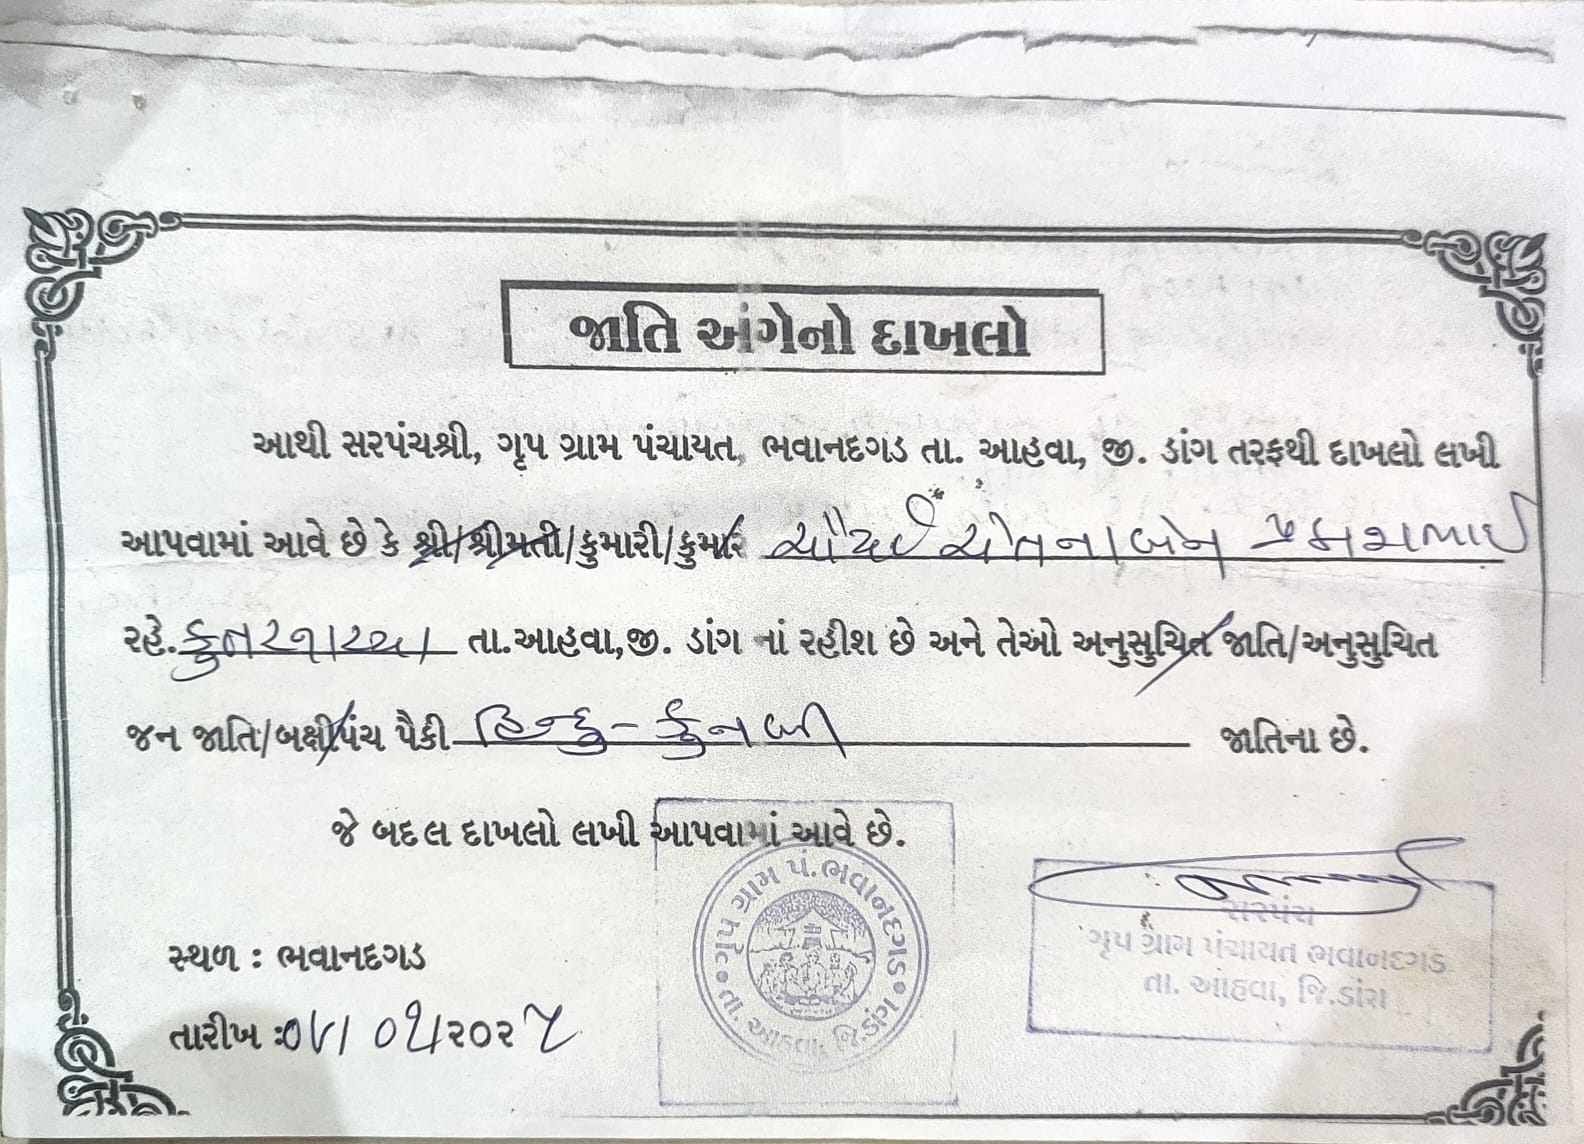 જાતિ અંગેનો દાખલો
આથી સરપંચશ્રી, ગૃપ ગ્રામ પંચાયત, ભવાનદગડ તા. આહવા, જી. ડાંગ તરફથી દાખલો લખી
આપવામાં આવે છે કે શ્રી/શ્રીમતી/કુમારી/કુમાર ચૌર્યા ચેતનાબેન પ્રકાશભાઈ
રહે. કુતરનાચ્યા તા.આહવા,જી. ડાંગ નાં રહીશ છે અને તેઓ અનુસુચિત જાતિ/અનુસુચિત
જન જાતિ/બક્ષીપંચ પૈકી હિન્દુ - કુનબી જાતિના છે.
જે બદલ દાખલો લખી આપવામાં આવે છે.
ગૃપ ગ્રામ પં. ભવાનદગડ • તા. આહવા, જિ.ડાંગ •
સરપંચ
ગૃપ ગ્રામ પંચાયત ભવાનદગડ
તા. આહવા, જિ.ડાંગ
સ્થળ : ભવાનદગડ
તારીખ :